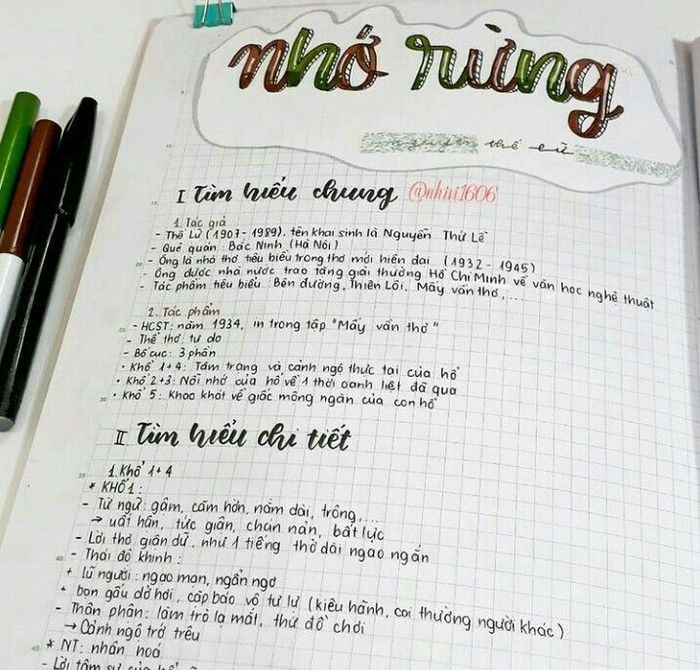 nhớ rừng
thế lữ
I Tìm hiểu chung @nhivi1606
1. Tác giả
- Thế Lữ (1907 - 1989). tên khai sinh là Nguyễn Thứ Lễ
- Quê quán: Bắc Ninh (Hà Nội)
- Ông là nhà thơ tiêu biểu trong thơ mới hiện đại (1932 - 1945)
- Ông được nhà nước trao tặng giải thưởng Hồ Chí Minh về văn học nghệ thuật
- Tác phẩm tiêu biểu: Bên đường, Thiên Lôi, Mấy vần thơ,....
2. Tác phẩm
- HCST: năm 1934, in trong tập "Mấy vần thơ"
- Thể thơ: tự do
- Bố cục: 3 phần
• Khổ 1+4: Tâm trạng và cảnh ngộ thực tại của hổ
• Khổ 2+3: Nỗi nhớ của hổ về 1 thời oanh liệt đã qua
• Khổ 5: Khao khát về giấc mộng ngàn của con hổ
II Tìm hiểu chi tiết
1. Khổ 1+4
* KHỔ 1:
- Từ ngữ: gậm, căm hờn, nằm dài, trông,...
→ uất hận, tức giận, chán nản, bất lực
- Lời thơ giản dữ, như 1 tiếng thở dài ngao ngán
- Thái độ khinh:
+ lũ người: ngạo mạn, ngẩn ngơ
+ bọn gấu dở hơi, cặp báo vô tư lự (kiêu hãnh, coi thường người khác)
- Thân phận: làm trò lạ mắt, thứ đồ chơi
→ Cảnh ngộ trớ trêu
* NT: nhân hoá
- Lời tâm sự của hổ